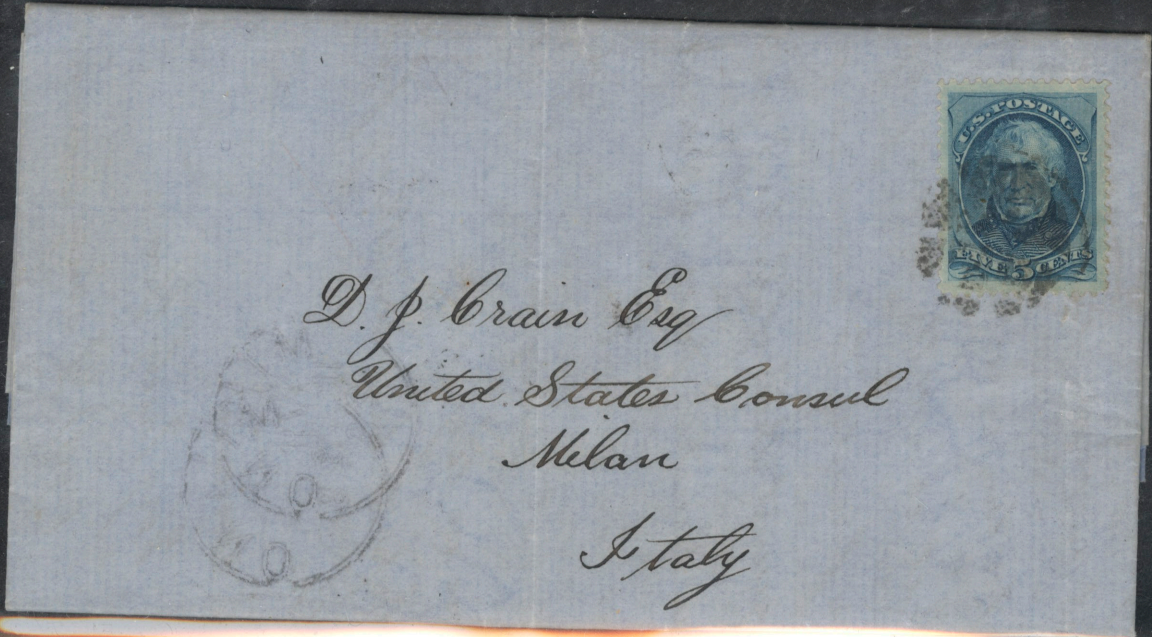 U.S. POSTAGE
FIVE 5 CENTS
D. J. Crain Esq
United States Consul
Milan
Italy